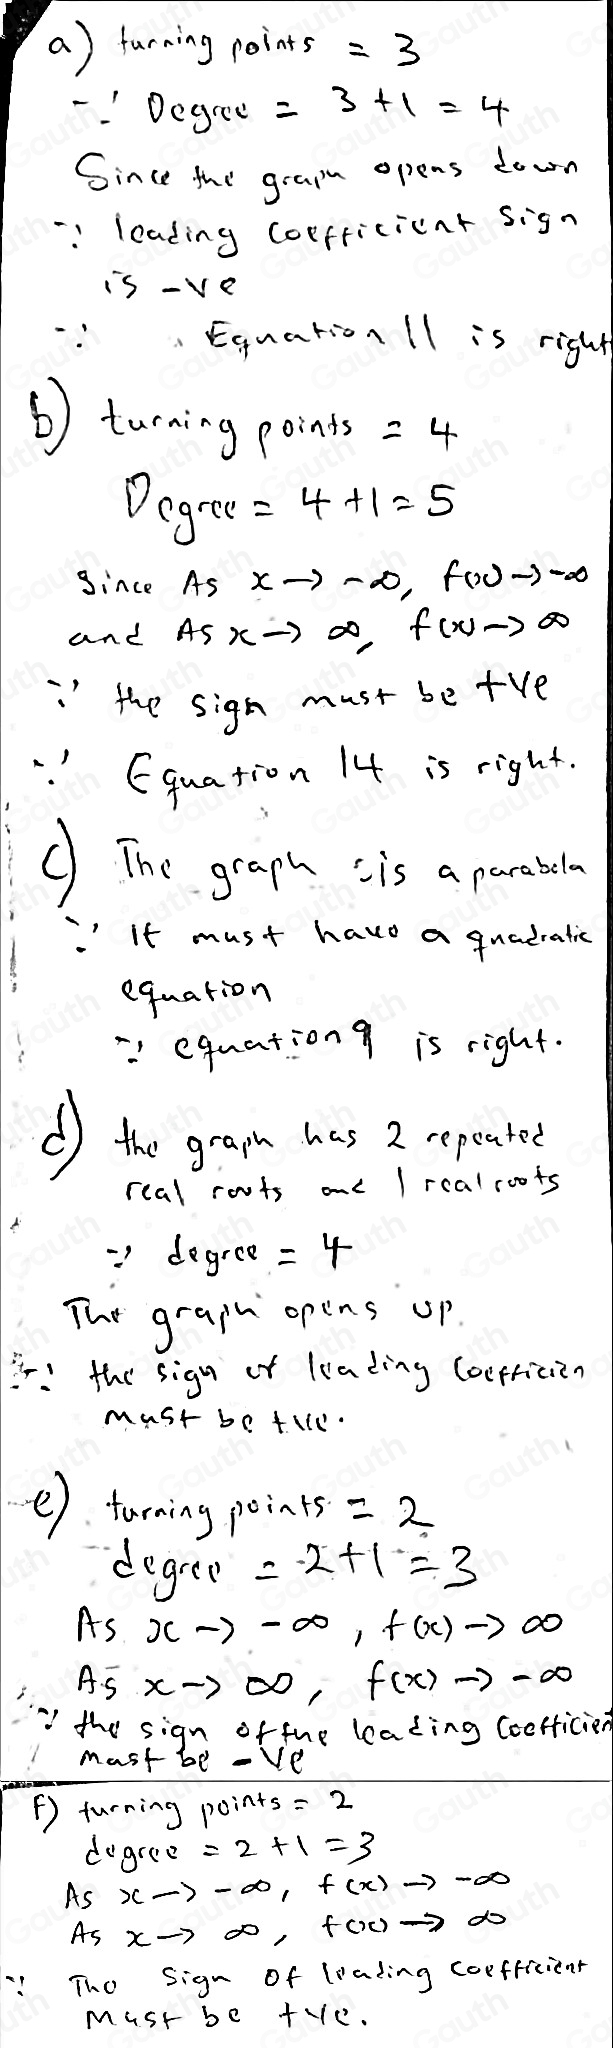 a) turning points = 3
∵ Degree = 3 + 1 = 4
Since the graph opens down
∵ leading coefficient sign
is -ve
∵ Equation 11 is right
b) turning points = 4
Degree = 4 + 1 = 5
Since As x → -∞, f(x) → -∞
and As x → ∞, f(x) → ∞
∵ the sign must be +ve
∵ Equation 14 is right.
c) The graph is a parabola
∵ It must have a quadratic
equation
∵ equation 9 is right.
d) the graph has 2 repeated
real roots and 1 real roots
∵ degree = 4
The graph opens up.
∵ the sign of leading coefficien
must be +ve.
e) turning points = 2
degree = 2 + 1 = 3
As x → -∞, f(x) → ∞
As x → ∞, f(x) → -∞
∵ the sign of the leading coefficien
must be -ve
f) turning points = 2
degree = 2 + 1 = 3
As x → -∞, f(x) → -∞
As x → ∞, f(x) → ∞
∵ The sign of leading coefficient
must be +ve.